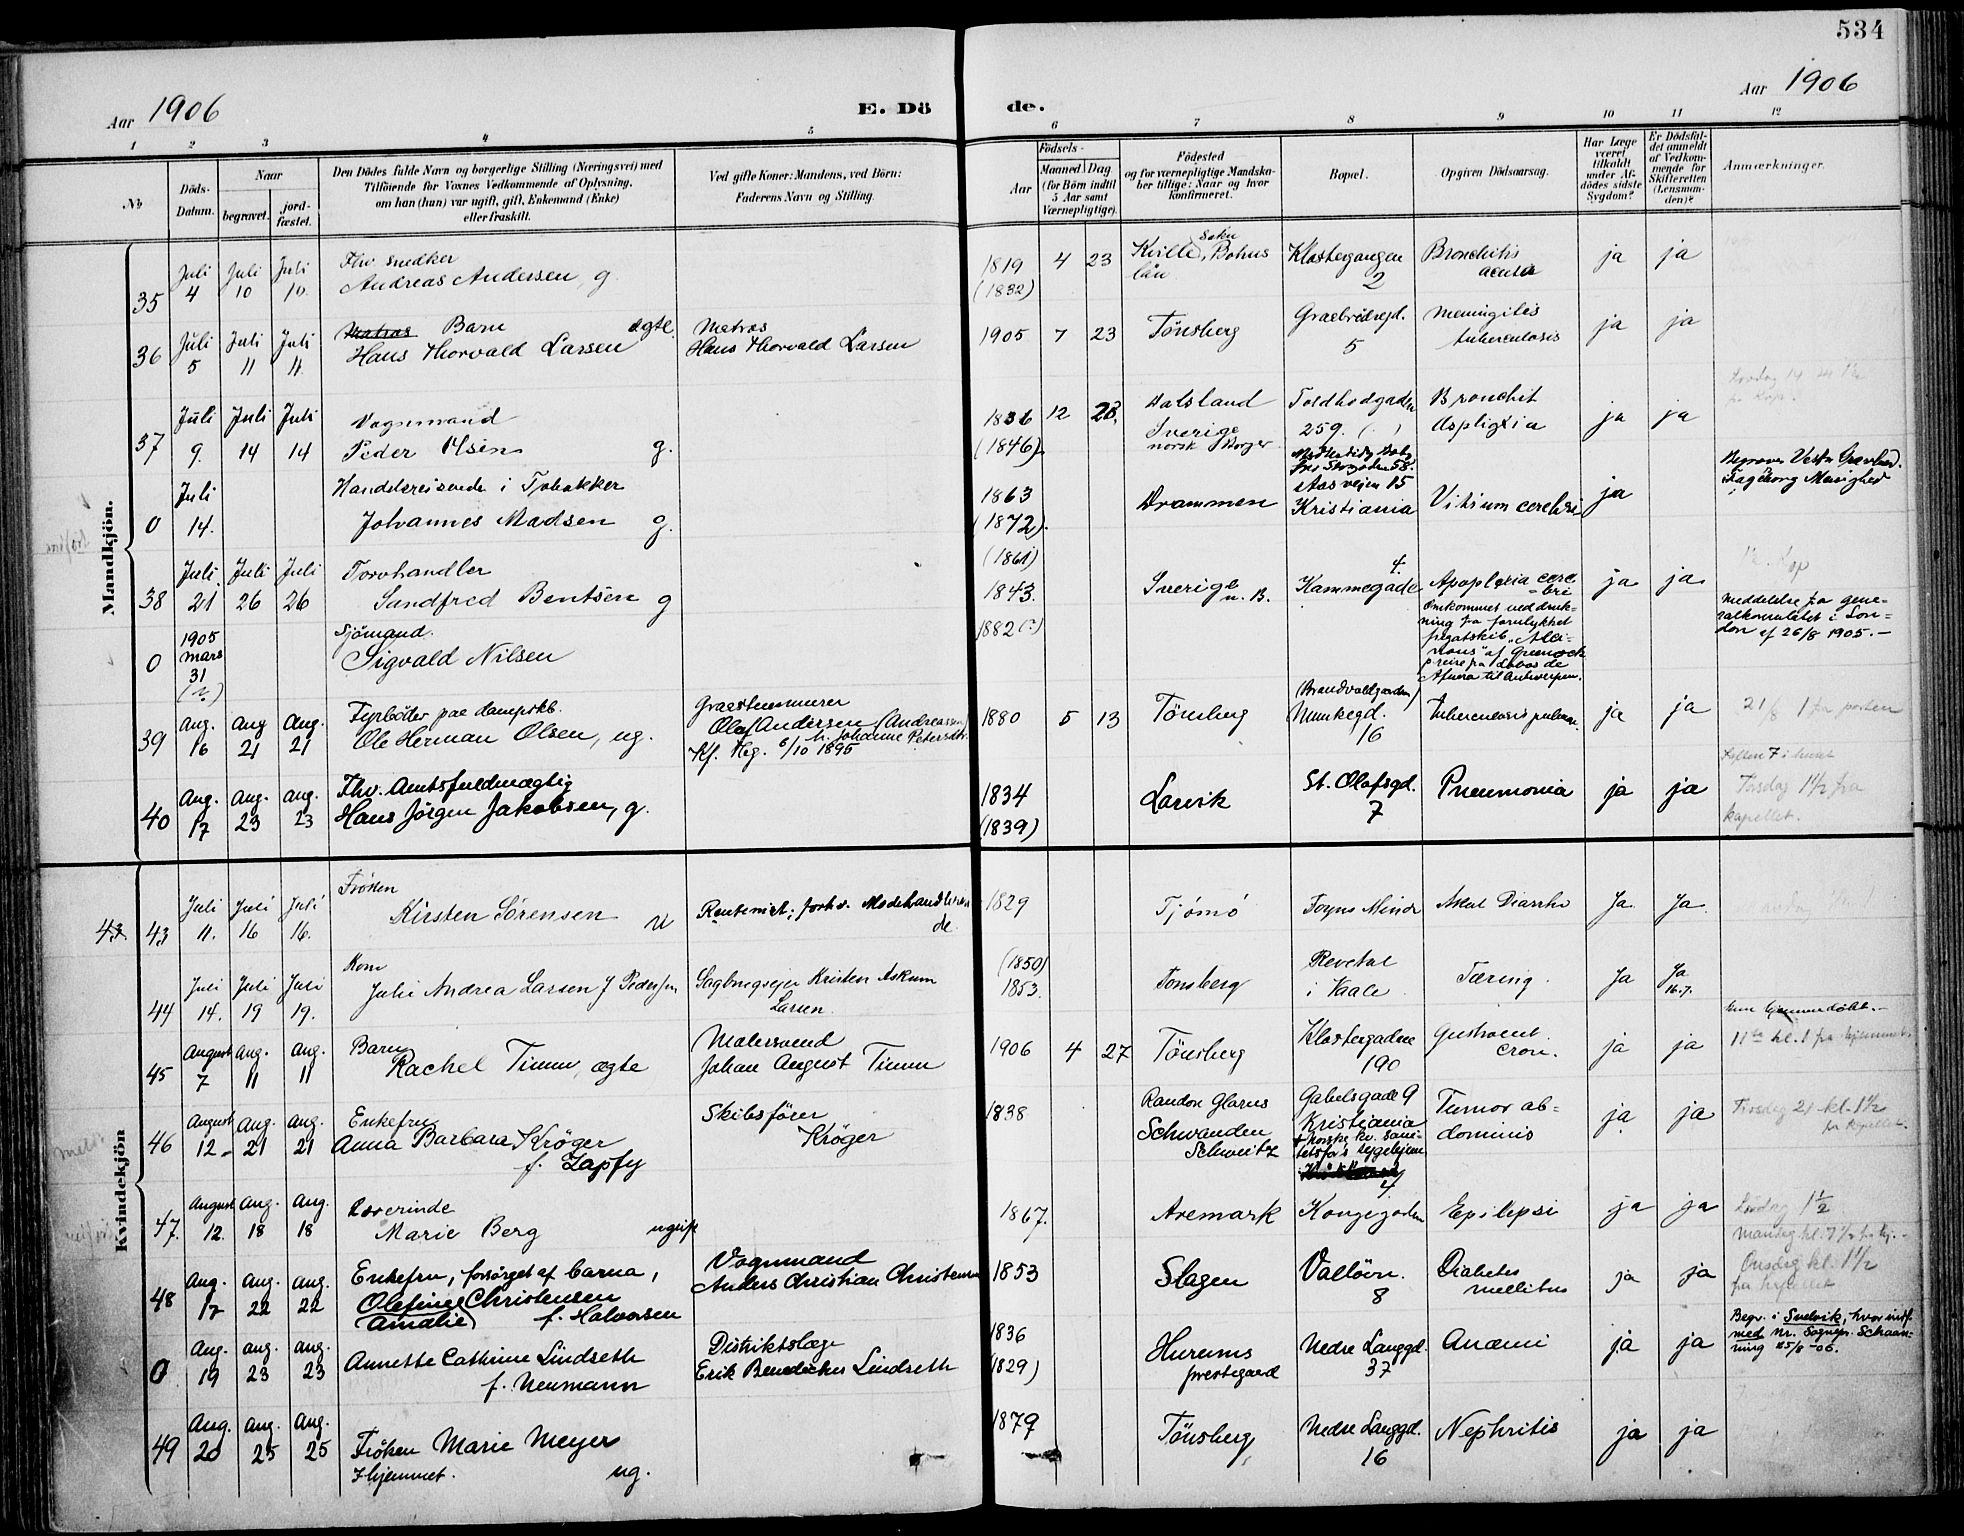 534
Aar 1906
E. Dö
de.
Aar 1906
1 2 3 4 5 6 7 8 9 10 11 12
№
Döds-
Datum.
Naar
begravet.
jord-
fæstet.
Den Dödes fulde Navn og borgerlige Stilling (Næringsvei) med
Tilföiende for Voxnes Vedkommende af Oplysning,
om han (hun) var ugift, gift, Enkemand (Enke)
eller fraskilt.
Ved gifte Koner: Mandens, ved Börn:
Faderens Navn og Stilling.
Födsels-
Aar
Maaned Dag
(for Börn indtil
5 Aar samt
Værnepligtige).
Födested
og for værnepligtige Mandska-
ber tillige: Naar og hvor
konfirmeret.
Bopæl.
Opgiven Dödsaarsag.
Har Læge
været
tilkaldt
under Af-
dödes sidste
Sygdom?
Er Dödsfal-
det anmeldt
af Vedkom-
mende for
Skifteretten
(Lensman-
den)?
Anmærkninger.
Mandkjön.
35 Juli 4 Juli 10 Juli 10
Fhv. snedker
Andreas Andersen, g.
1819 (1832) 4 23
Kville Sokn, Bohus
län
Klostergangen
2
Bronchitis
acuta
ja ja
36 Juli 5 Juli 11 Juli 11
Matros Barn ægte
Hans Thorvald Larsen
Matros
Hans Thorvald Larsen
1905 7 23
Tönsberg
Graabrödregd.
5
Meningitis
tuberculosis
ja ja
37 Juli 9. Juli 14 Juli 14
Vognmand
Peder Olsen g.
1836 (1846) 12 28.
Dalsland
Sverige
norsk Borger
Toldbodgaden
259.
Bronchit
Asphyxia
ja ja
0 Juli 14.
Handelsreisende i Tobakker
Johannes Madsen g.
1863
(1872).
Drammen
Aasveien 15
Kristiania
Vitium cerebri
ja
Begraves Vestr Gravlund.
Fagerborg Menighed
38 Juli 21 Juli 26 Juli 26
Torvhandler
Sandfred Bentsen g
(1861)
1843.
Sverige
n. B.
Kammegade
4.
Apoplexia cere
bri
ja ja
0 1905 mars 31 (?)
Sjömand.
Sigvald Nilsen
1882 (?)
Omkommet ved druk-
ning fra forulykket
fregatskib "Alci-
nous" af Greenock
p reise fra Lobos de
Afuera til Antwerpen.
Meddelelse fra gene-
ralkonsulatet i Lon-
don af 26/8 1905.-
39 Aug. 16 Aug 21 Aug. 21
Fyrböter paa dampskb.
Ole Herman Olsen, ug.
Olaf Andersen (Andreassen)
Kf. Tbg. 6/10 1895
1880 5 13
Tönsberg
(Brandvoldgaarden)
Munkegd.
16
Tuberculosis pulmon.
ja ja
21/8 1 fra porten
40 Aug. 17 Aug. 23 Aug. 23
Fhv. Amtsfuldmægtig
Hans Jörgen Jakobsen, g.
1834
(1839)
Larvik
St. Olafsgd.
7
Pneumonia
ja ja
Torsdag 1½ fra
kapellet.
Kvindekjön
43 43 Juli 11. Juli 16 Juli 16.
Fröken
Kirsten Sörensen u
Rentenist; forhv. Modehandleren-
de.
1829
Tjömö
Foyns Minde
Akut Diarrhe
Ja. Ja.
44 Juli 14. Juli 19 Juli 19.
Kone
Julie Andrea Larsen f Pedersen
Sagbrugseier Kristen Askum
Larsen.
(1850)
1853.
Tönsberg
Revetal
i Vaale
Tæring.
Ja Ja
16.7.
45 August 7 Aug. 11 Aug. 11
Barn
Rachel Timm, ægte
Malersvend
Johan August Timm
1906 4 27
Tönsberg
Klostergadene
190
Gastroent.
cron.
ja ja
Kun hjemmedöbt.-
11te kl. 1 fra hjemmet.
46 August 12 Aug. 21 Aug. 21
Enkefru
Anna Barbara Kröger
f. Zapfy
Skibsförer
Kröger
1838
Kanton Glarus
Schwanden
Schweitz
Gabelsgade 9
Kristiania
+ norske kv. sani-
tetsfor's sygehjem
Tumor ab-
dominis
ja ja
Tirsdag 21 kl. 1½
fr kapellet.
47. August 12. Aug. 18 Aug. 18
Lærerinde
Marie Berg ugift
1867.
Aremark
4
Kongegaden
Epilepsi
ja ja
Lördag 1½
48 Aug. 17 Aug. 22 Aug. 22
Enkefru, forsörget af barna,
Olefine Christensen
Amalie f. Halvorsen
Vognmand
Anders Christian Christensen
1853
Slagen
Vallövn.
8
Diabetes
mellitus
ja ja
Onsdag kl. 1½
fra kapellet
0 Aug. 19 Aug. 23 Aug. 23
Annette Cathrine Lindseth
f. Neumann
Distriktslæge
Erik Benedictus Lindseth
1836
(1829)
Hurums
prestegaard
Nedre Langgd.
37
Anæmi
ja ja
Begr. i Svelvik, hvor indf.
med nr. Sognepr. Schaan-
ning 25/8-06.
49 Aug. 20 Aug. 25 Aug. 25
Fröken Marie Meyer
I hjemmet. ug.
1879
Tönsberg
Nedre Langgd.
16
Nephritis
ja ja